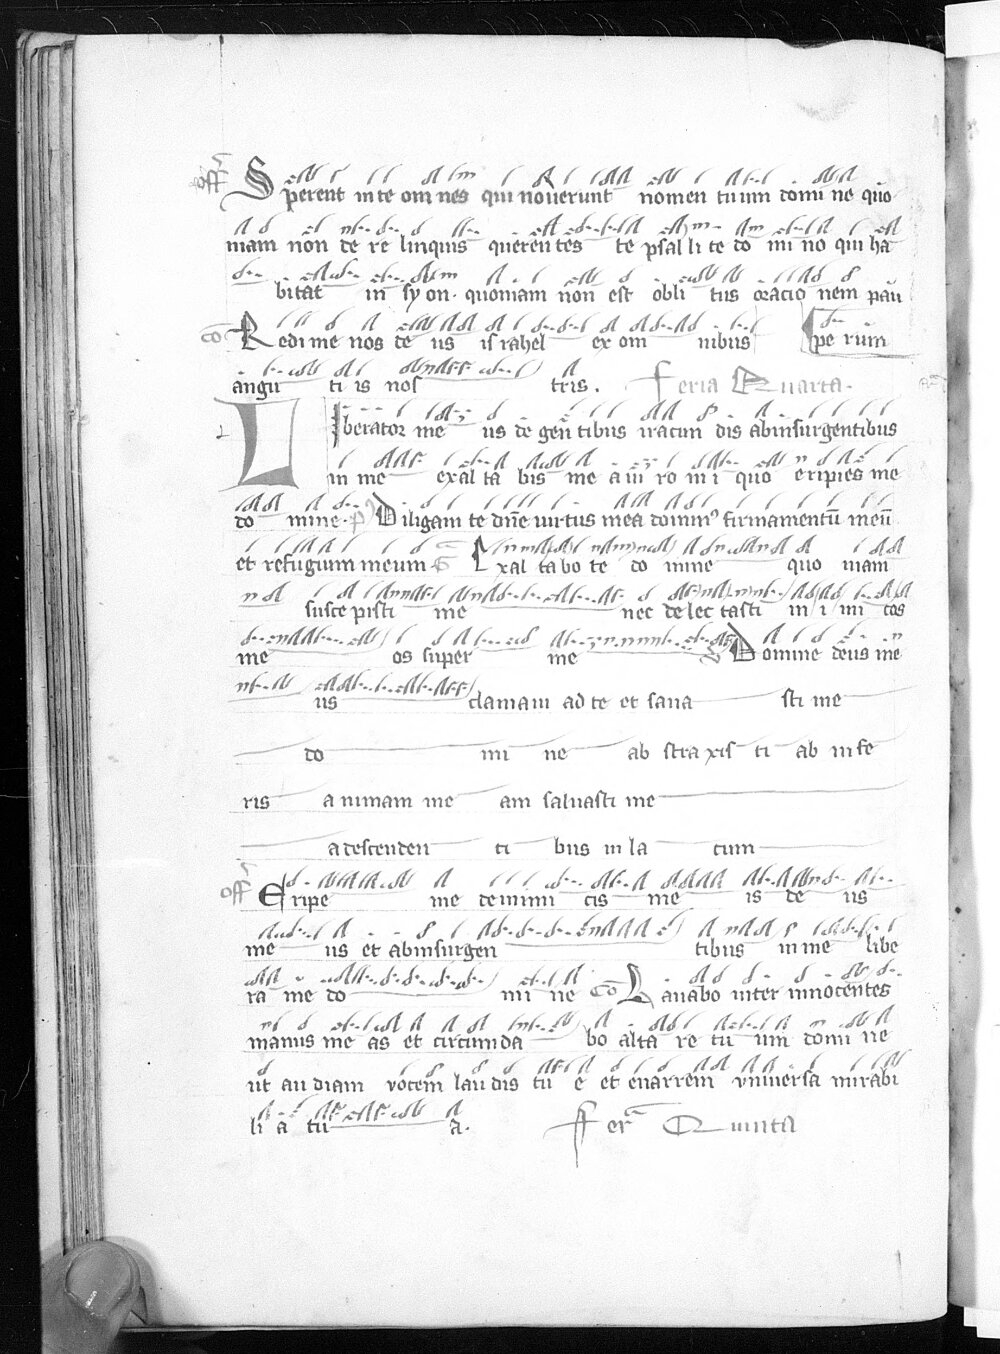 off Sperent in te om nes qui noverunt nomen tuum domi ne quo
niam non de re linquis querentes te psal li te do mi no qui ha
bitat in sy on. quoniam non est obli tus oracio nem pau
co Redime nos de us israhel ex om nibus pe rum
angu ti is nos tris. Feria Quarta.
Liberator me us de gen tibus iracun dis ab insurgentibus
in me exal ta bis me a vi ro ini quo eripies me
do mine. p Diligam te dne virtus mea domin9 firmamentu meu
et refugium meum G Exal ta bo te do mine quo niam
susce pisti me nec de lec tasti in i mi cos
me os super me V Domine deus me
us clamavi ad te et sana sti me
do mi ne ab stra xis ti ab infe
ris a nimam me am salvasti me
a descenden ti bus in la cum
off Eripe me de inimi cis me is de us
me us et ab insurgen tibus in me libe
ra me do mi ne Co Lavabo inter innocentes
manus me as et circumda bo alta re tu um domi ne
ut au diam vocem lau dis tu e et enarrem universa mirabi
li a tu a. Fer Quinta